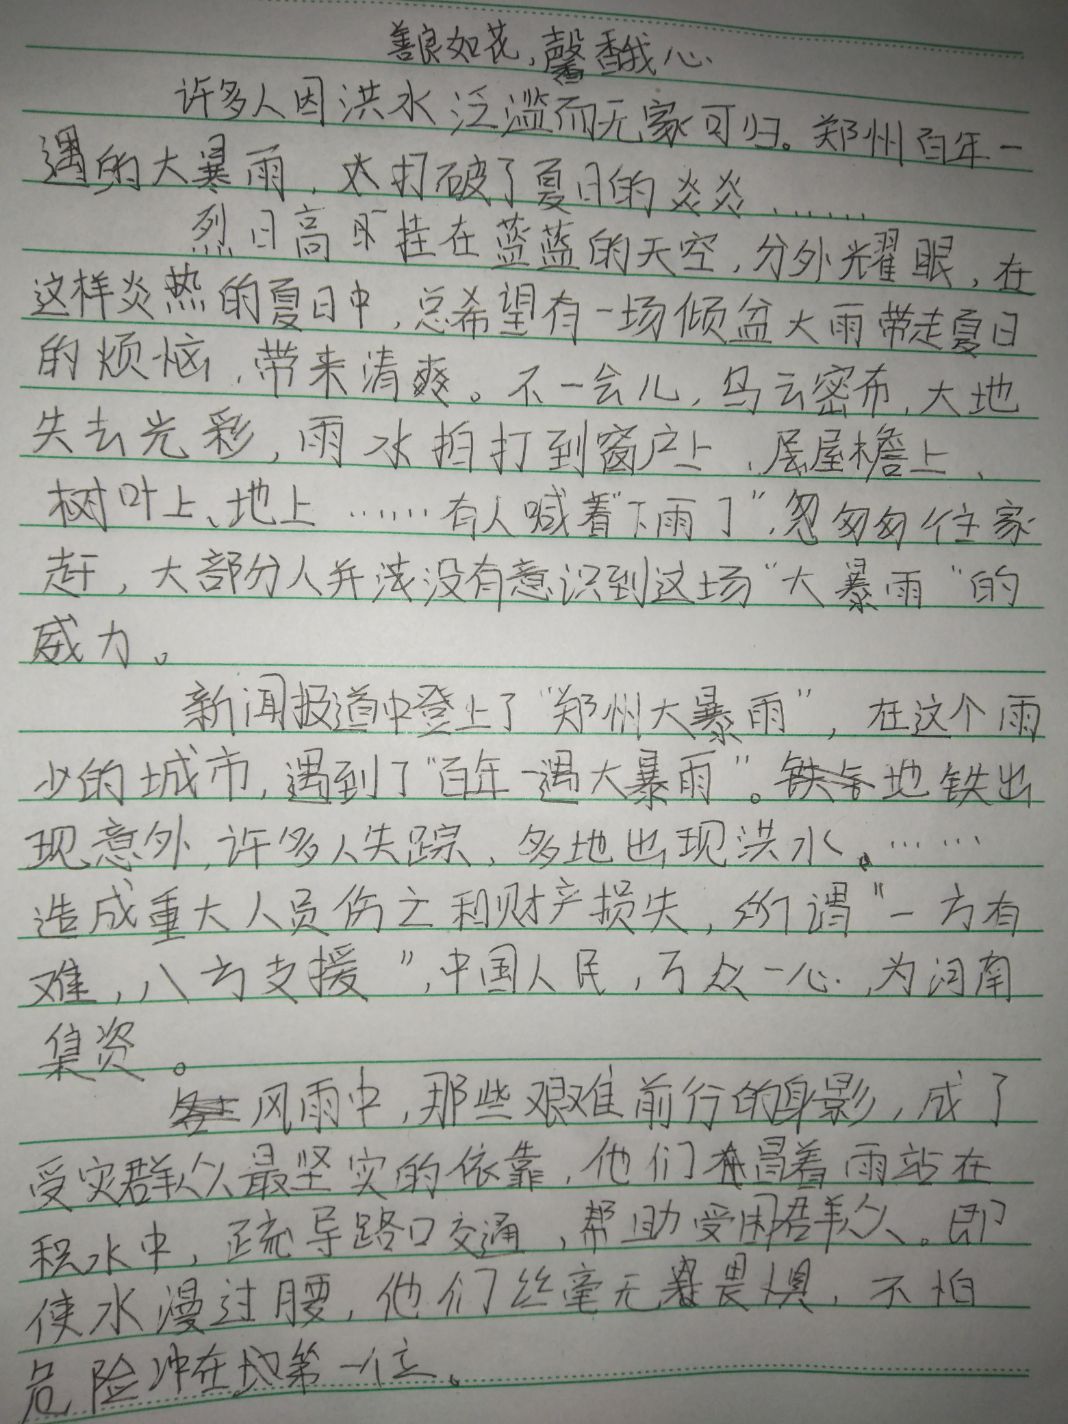 善良如花,馨香我心
许多人因洪水泛滥而无家可归。郑州百年一
遇的大暴雨,打破了夏日的炎炎……
烈日高挂在蓝蓝的天空,分外耀眼,在
这样炎热的夏日中,总希望有一场倾盆大雨带走夏日
的烦恼,带来清爽。不一会儿,乌云密布,大地
失去光彩,雨水拍打到窗户上、屋檐上、
树叶上、地上……有人喊着"下雨了",忽匆匆往家
赶,大部分人并没有意识到这场"大暴雨"的
威力。
新闻报道中登上了"郑州大暴雨",在这个雨
少的城市,遇到了"百年一遇大暴雨"。地铁出
现意外,许多人失踪,多地出现洪水、……
造成重大人员伤亡和财产损失,所谓"一方有
难,八方支援",中国人民,万众一心,为河南
集资。
风雨中,那些艰难前行的身影,成了
受灾群众最坚实的依靠,他们冒着雨站在
积水中,疏导路口交通,帮助受困群众。即
使水漫过腰,他们丝毫无畏惧,不怕
危险冲在第一位。